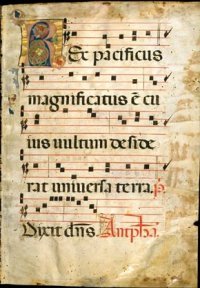 Rex pacificus
magnificatus ē cu
ius vultum deside
rat universa terra. p̄.
Dixit dn̄s. Antipha